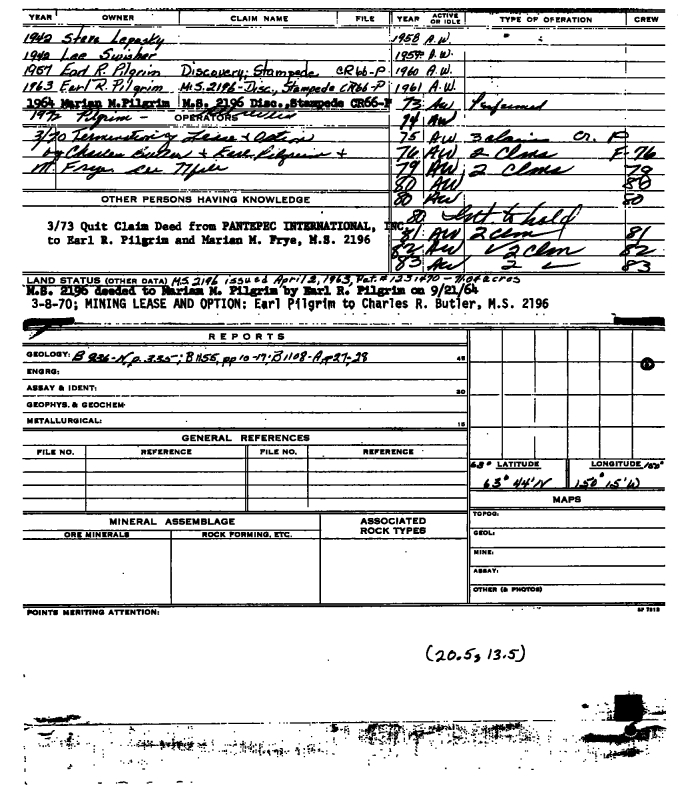 YEAR OWNER CLAIM NAME FILE YEAR ACTIVE OR IDLE TYPE OF OPERATION CREW
1942 Steve Lapasky 1958 A.W.
1942 Lee Swisher 1959 A.W.
1957 Earl R. Pilgrim Discovery; Stampede CR66-P 1960 A.W.
1963 Earl R. Pilgrim M.S. 2196-Disc., Stampede CR66-P 1961 A.W.
1964 Marian M.Pilgrim M.S. 2196 Disc.,Stampede CR66-P 73 AW Performed
1972 Pilgrim - 74 AW
OPERATORS
3/70 Terminating Lease & Option 75 AW 3 Cr. P
by Charles Butler & Earl Pilgrim + 76 AW 2 Clms F-76
M Frye see 79 AW 2 Clms 79
80 AW 80
OTHER PERSONS HAVING KNOWLEDGE 80 AW 80
80 Int to hold
3/73 Quit Claim Deed from PANTEPEC INTERNATIONAL, INC 81 AW 2 clm 81
to Earl R. Pilgrim and Marian M. Frye, M.S. 2196 82 AW 2 clm 82
83 AW 2 83
LAND STATUS (OTHER DATA) M.S. 2196 issued April 2, 1963, Pat.# 1231470
M.S. 2196 deeded to Marian M. Pilgrim by Earl R. Pilgrim on 9/21/64
3-8-70; MINING LEASE AND OPTION: Earl Pilgrim to Charles R. Butler, M.S. 2196
REPORTS
GEOLOGY: B 836-N p. 335-; B1155, pp 10-17; B1108-A, p27-28 45
ENGRG:
ASSAY & IDENT: 30
GEOPHYS. & GEOCHEM-
METALLURGICAL: 15
GENERAL REFERENCES
FILE NO. REFERENCE FILE NO. REFERENCE
63° LATITUDE LONGITUDE 150°
63° 44'N 150° 15'W
MAPS
TOPOG:
GEOL:
MINE:
ASSAY:
OTHER (& PHOTOS)
MINERAL ASSEMBLAGE ASSOCIATED ROCK TYPES
ORE MINERALS ROCK FORMING, ETC.
POINTS MERITING ATTENTION:
(20.5, 13.5)